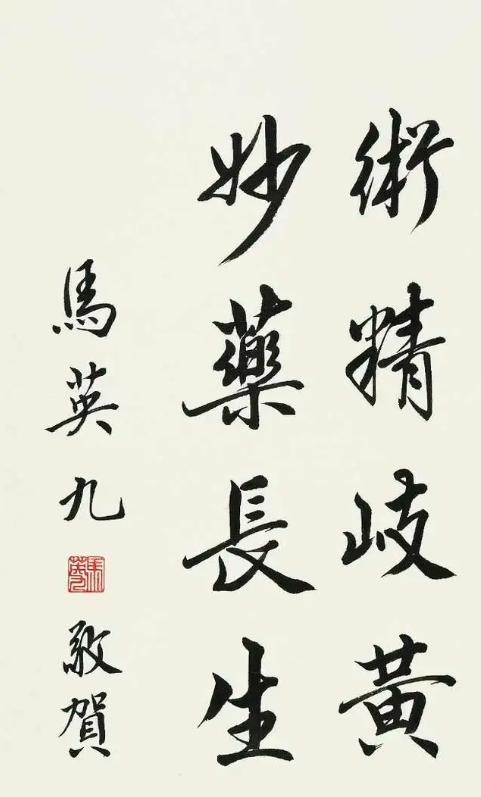 術精岐黃
妙藥長生
馬英九
敬賀
馬英九